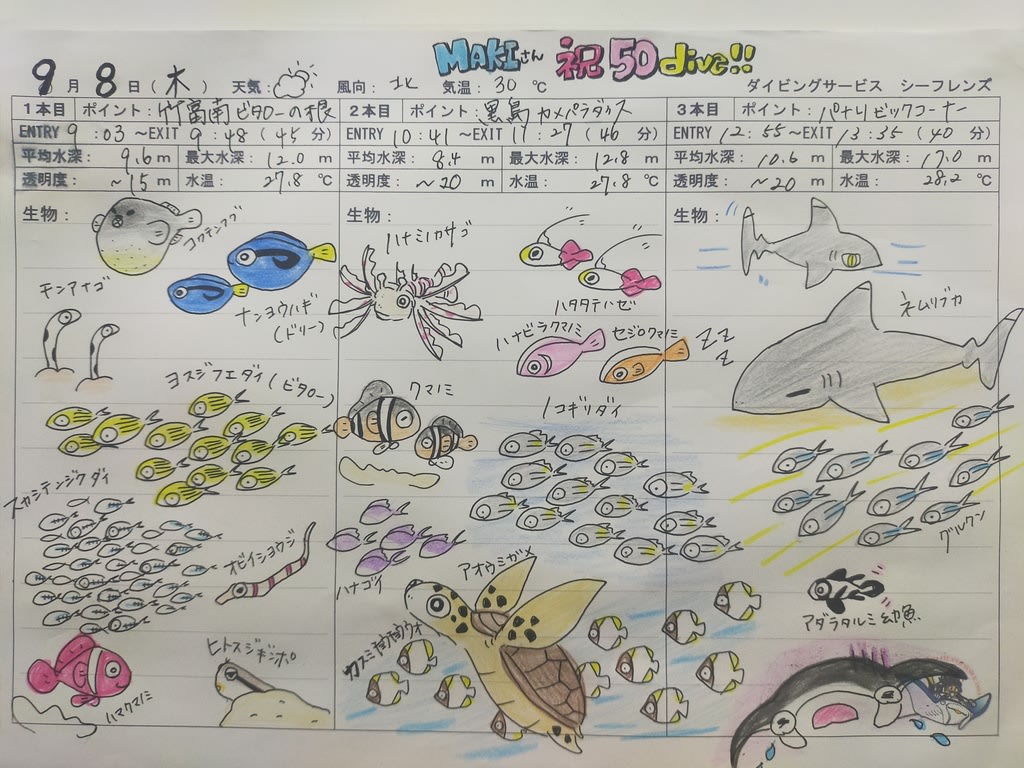 MAKIさん 祝 50 dive!!
9月 8日(木) 天気: 風向: 北 気温: 30 ℃ ダイビングサービス シーフレンズ
1本目 ポイント: 竹富南ビタローの根
ENTRY 9:03 ~EXIT 9:48 (45 分)
平均水深: 9.6 m 最大水深: 12.0 m
透明度: ~15 m 水温: 27.8 ℃
生物:
コクテンフグ
チンアナゴ
ナンヨウハギ
(ドリー)
ヨスジフエダイ(ビタロー)
スカシテンジクダイ
オビイショウジ
ヒトスジギンポ
ハマクマノミ
2本目 ポイント: 黒島カメパラダイス
ENTRY 10:41 ~EXIT 11:27 (46 分)
平均水深: 8.4 m 最大水深: 12.8 m
透明度: ~20 m 水温: 27.8 ℃
生物:
ハナミノカサゴ
ハタタテハゼ
ハナビラクマノミ
セジロクマノミ
クマノミ
ノコギリダイ
ハナゴイ
アオウミガメ
カスミチョウチョウウオ
3本目 ポイント: パナリビックコーナー
ENTRY 12:55 ~EXIT 13:35 (40 分)
平均水深: 10.6 m 最大水深: 17.0 m
透明度: ~20 m 水温: 28.2 ℃
生物:
ネムリブカ
ZZZ
グルクン
アダラタルミ幼魚